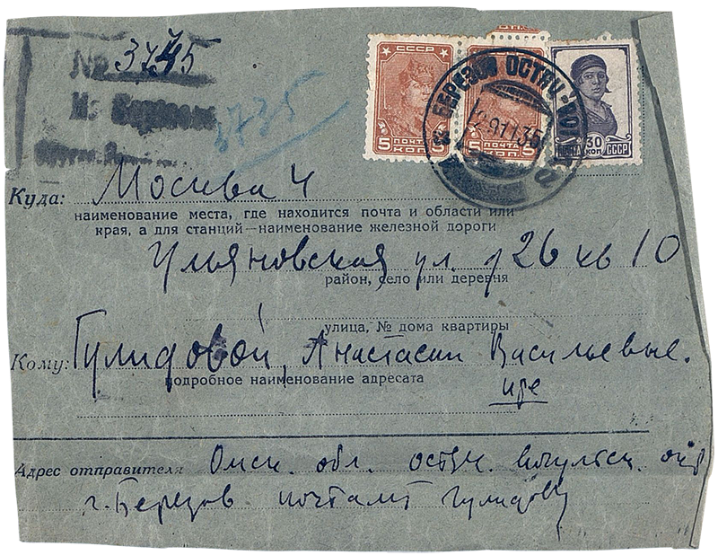 № 3745
Из Березова
3735
СССР
ПОЧТА
5 КОП. 5
СССР
ПОЧТА
КОП. 5
30 КОП.
ПОЧТА СССР
БЕРЕЗОВ ОСТЯК-
29 11 35
Куда: Москва 4
наименование места, где находится почта и области или
края, а для станций—наименование железной дороги
Ульяновская ул. д 26 кв 10
район, село или деревня
улица, № дома квартиры
Кому: Гулидовой, Анастасии Васильевне.
подробное наименование адресата
Адрес отправителя Омск. обл. остяк. вогульск. окр
г. Березов почтамт Гулидову